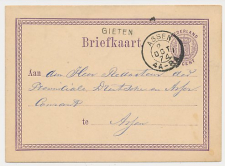 GIETEN
Briefkaart
ASSEN
NEDERLAND
Aan den Heer Redacteur der
Provinciale Drentsche en Asser
Courant
te Assen